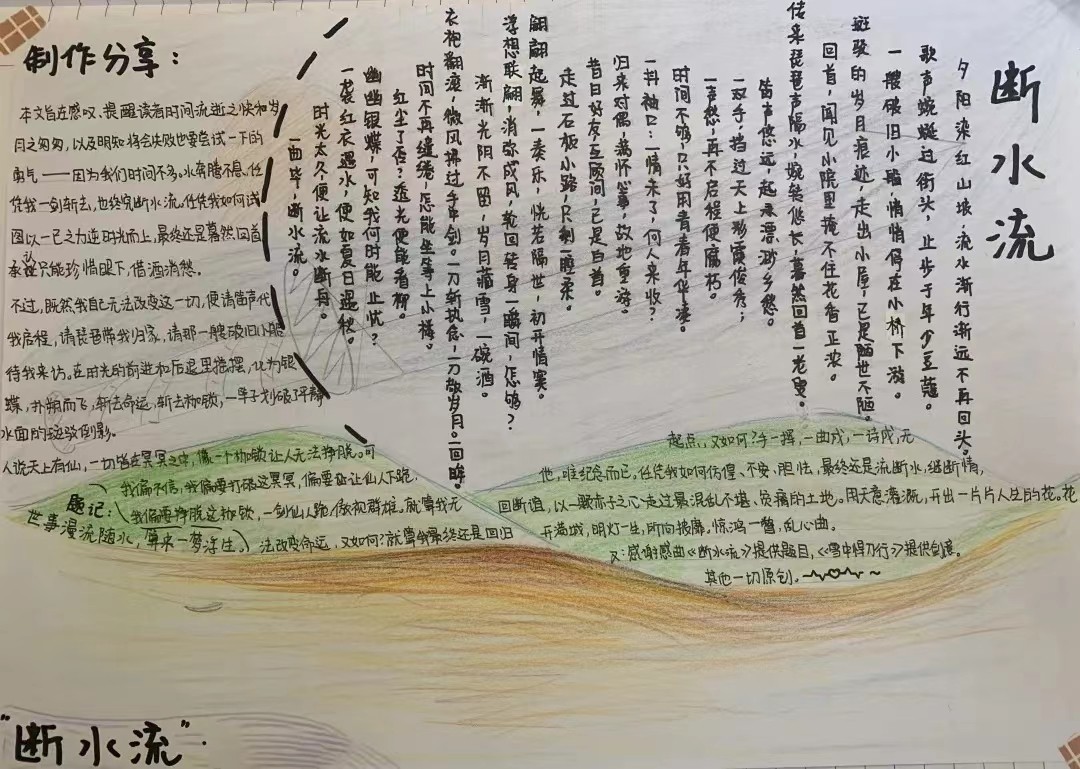 断水流
夕阳染红山坡,流水渐行渐远不再回头。
歌声蜿蜒过街头,止步于年少豆蔻。
一艘破旧小船悄悄停在小桥下游。
斑驳的岁月痕迹,走出小屋,已是陋世不陋。
回首,闻见小院里掩不住花香正浓。
传来琵琶声隔水,婉转悠长,蓦然回首一老叟。
笛声悠远,起来漂渺乡愁。
一双手挡过天上彩霞俊秀;
一声愁,再不启程便腐朽。
时间不够,只好用青春年华凑。
一抖袖口:一情未了,何人来收?
归来对偶,满怀思事,故地重游。
昔日好友,互顾间,已是白首。
走过石板小路,只剩腼柔。
翩翩起舞,一奏乐,恍若隔世,初开情窦。
浮想联翩,消弥成风,轮回转身一瞬间,怎够?
渐渐光阴不留,岁月藏雪,一碗酒。
衣袍翻滚,微风拂过手中剑。一刀斩执念,一刀敬岁月。一回眸。
时间不再缱绻,怎能坐等上小楼。
红尘了在?透光便能看柳。
幽幽银蝶,可知我何时能止忧?
一袭红衣遇水,便如夏日遇秋。
时光太久便让流水断舟。
一曲毕,断水流。
制作分享:
本文旨在感叹、提醒读者时间流逝之快和岁
月之匆匆,以及明知将会失败也要尝试一下的
勇气——因为我们时间不多,水奔腾不息、任
凭我一剑斩去,也终究断水流。任凭我如何试
图以一己之力逆时光而上,最终还是蓦然回首
本该只能珍惜眼下,借酒消愁。
不过,既然我自己无法改变这一切,便请笛声代
我启程,请琵琶带我归家,请那一艘破旧小船
待我来访。在时光的前进和后退里摇摆,化为银
蝶,扑朔而飞,斩去命运,斩去枷锁,一竿子划破了平静
水面的斑驳倒影。
人说天上有仙,一切皆在冥冥之中,像一个枷锁让人无法挣脱。可
我偏不信,我偏要打破这冥冥,偏要让仙人下跪,
我偏要挣脱这枷锁,一剑仙人跪,傲视群雄。就算我无
法改变命运,又如何?就算我最终还是回归
题记:
世事漫流随水,算来一梦浮生。
起点,又如何?手一挥,一曲成,一诗成,无
他,唯纪念而已。任凭我如何彷徨、不安、胆怯,最终还是流断水,继断情,
回断道,以一颗赤子之心走过最混乱不堪、贫瘠的土地。用天意灌溉,开出一片片人生的花。花
开满城,明灯一生,所向披靡。惊鸿一瞥,乱心曲。
又:感谢戏曲《断水流》提供题目,《雪中悍刀行》提供创意。
其他一切原创。
"断水流".